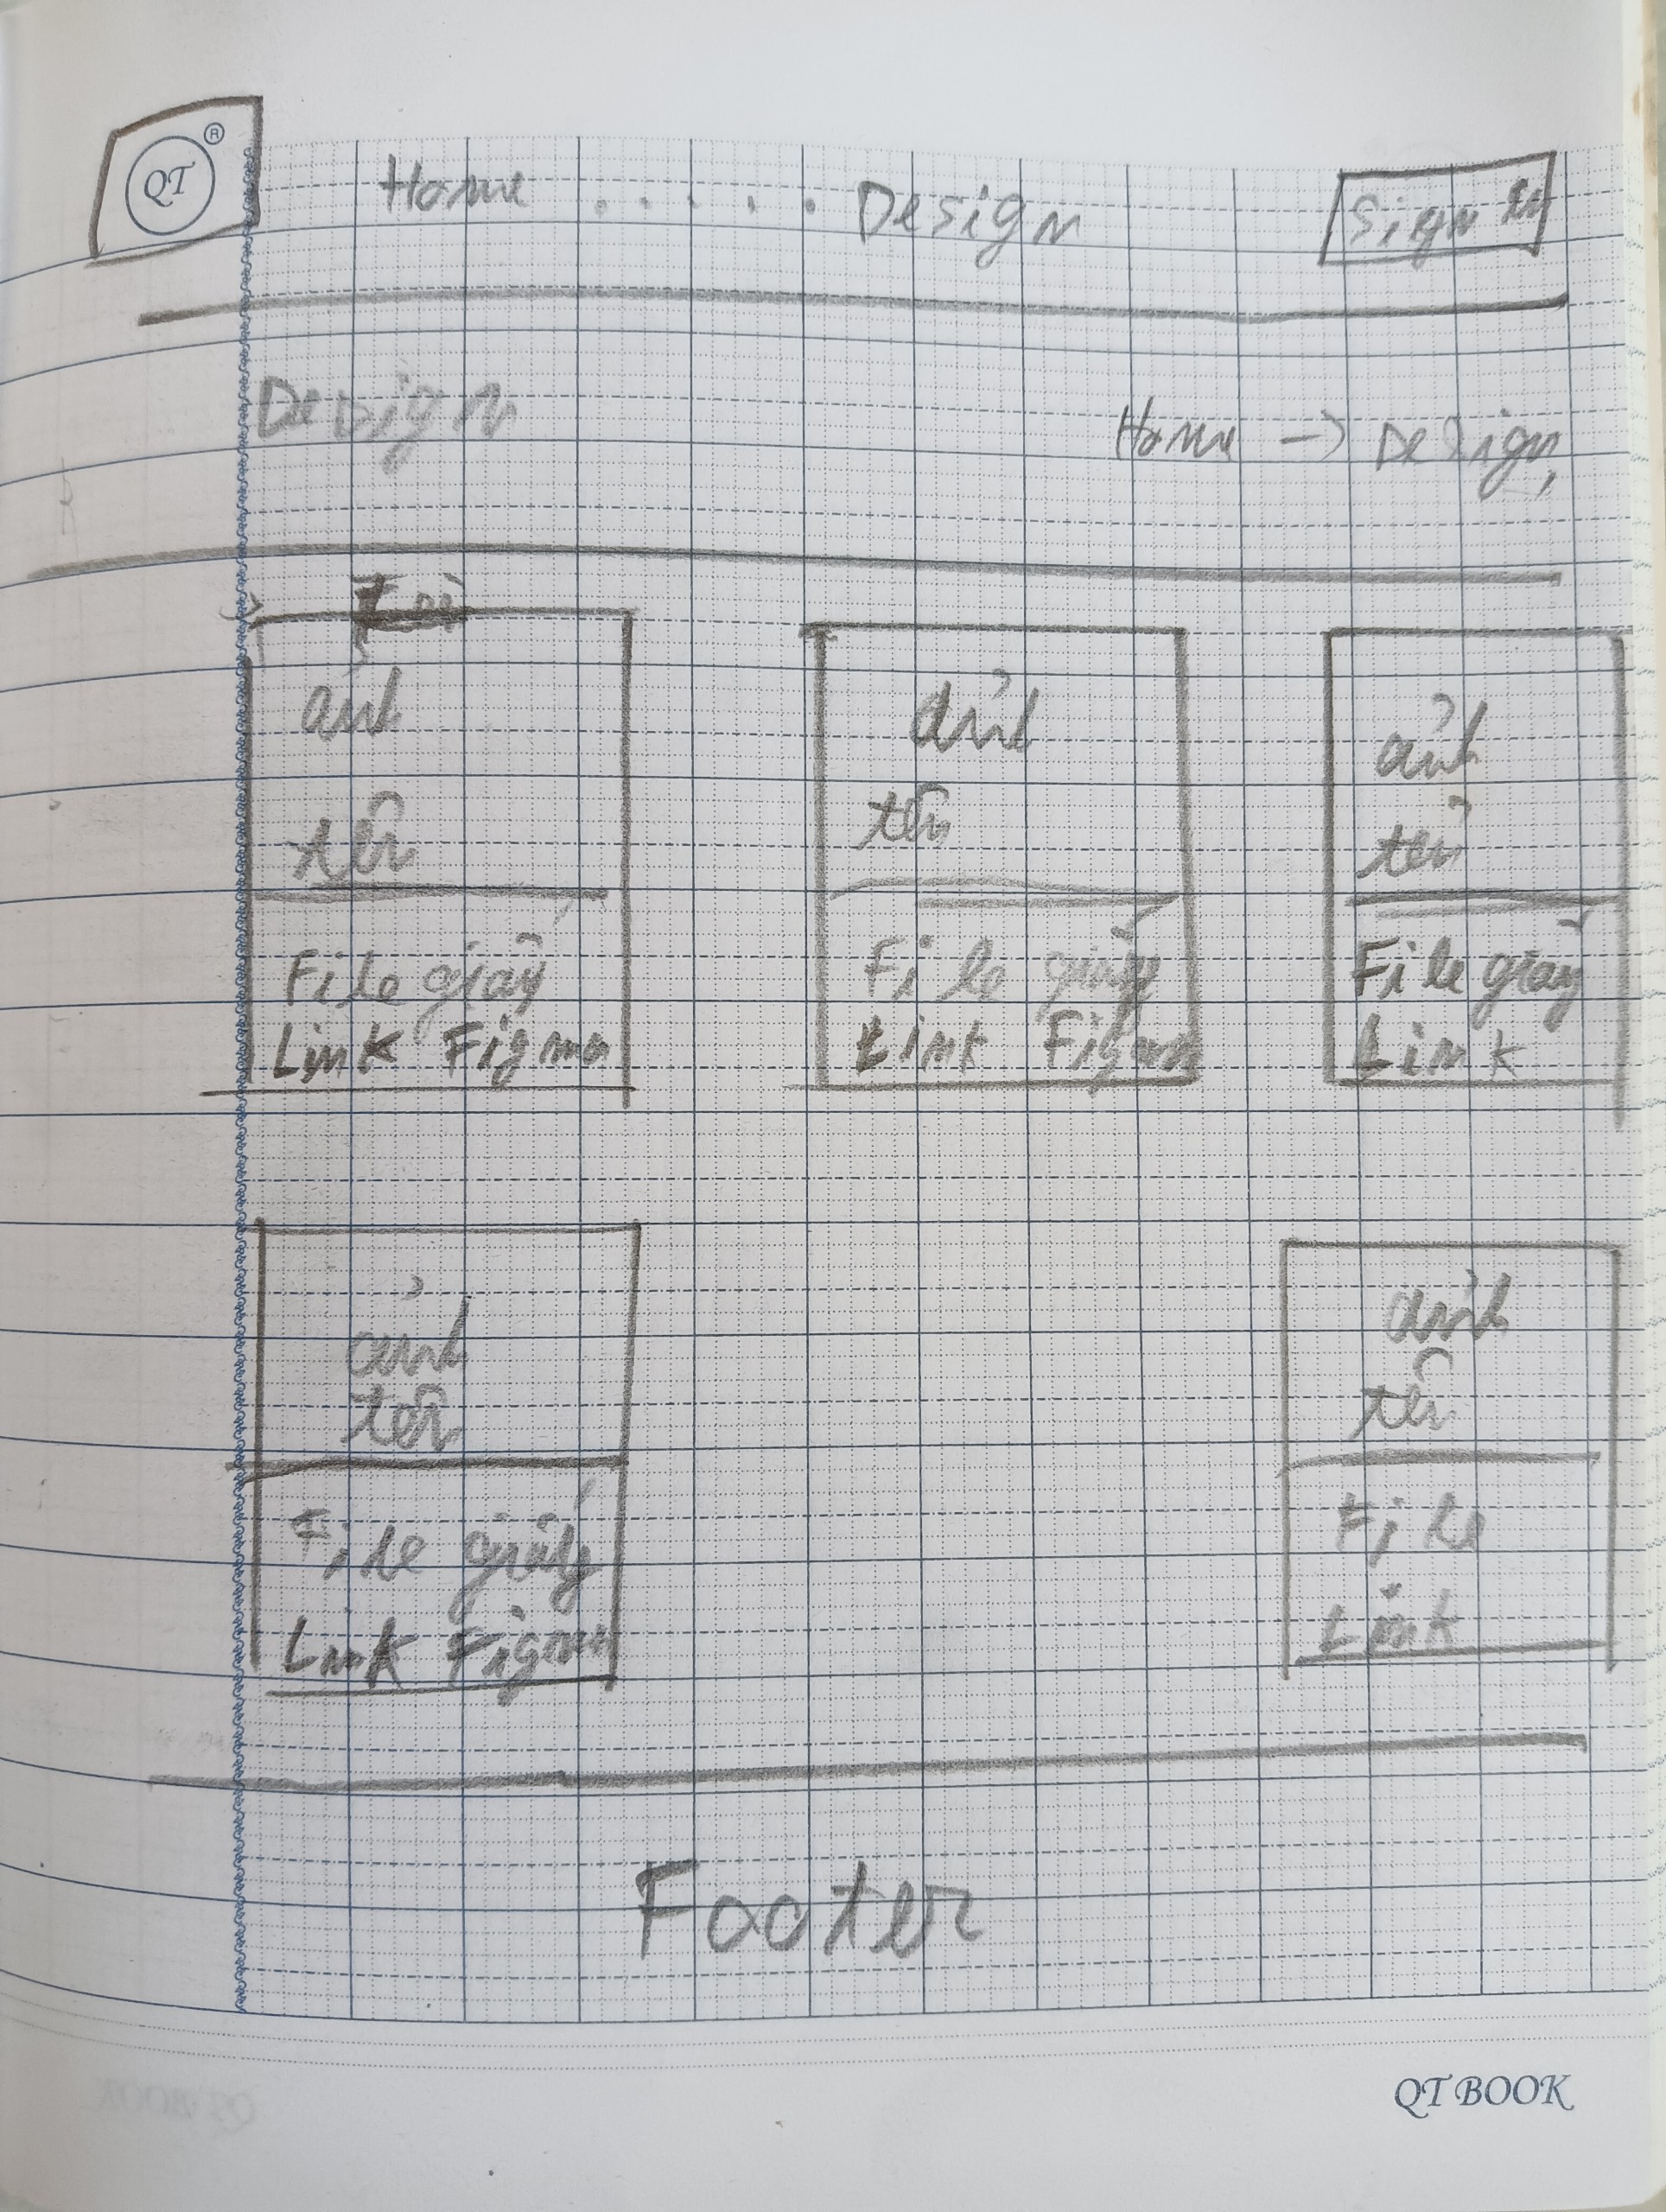 QT ®
Home ..... Design Sign in
Design
Home -> Design
ảnh
tên
File giấy
Link Figma
ảnh
tên
File giấy
Link Figma
ảnh
tên
File giấy
Link
ảnh
tên
File giấy
Link Figma
ảnh
tên
File
Link
Footer
QT BOOK